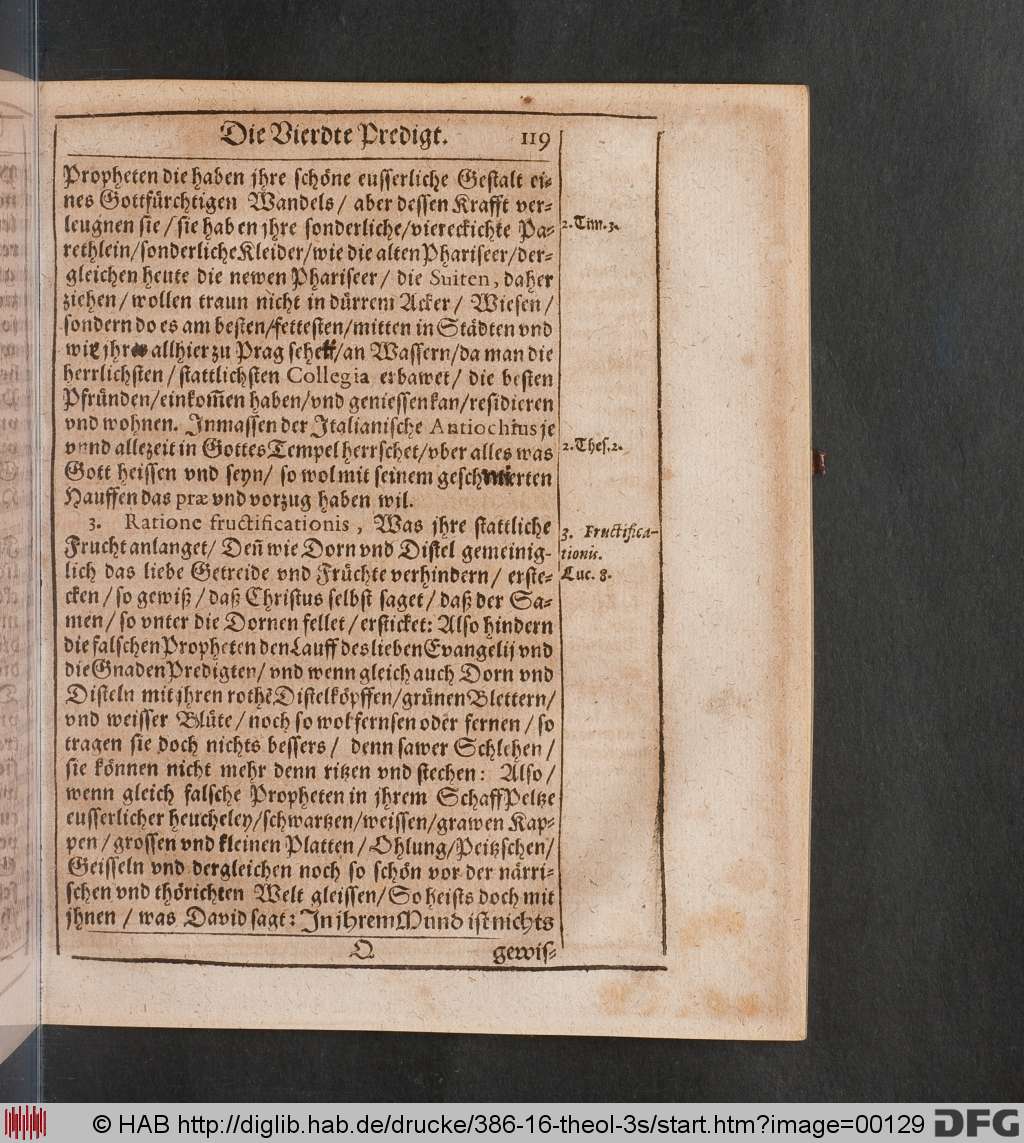 Die Vierdte Predigt. 119
Propheten die haben jhre schöne eusserliche Gestalt ei⸗
nes Gottfürchtigen Wandels / aber dessen Krafft ver⸗
leugnen sie / sie haben jhre sonderliche / viereckichte Pa⸗
2. Tim. 3.
rethlein / sonderliche Kleider / wie die alten Phariseer / der⸗
gleichen heute die newen Phariseer / die Suiten, daher
ziehen / wollen traun nicht in dürrem Acker / Wiesen /
sondern do es am besten / fettesten / mitten in Städten vnd
wie jhr allhier zu Prag / an Wassern / da man die
herrlichsten / stattlichsten Collegia erbawet / die besten
Pfründen / einkom̃en haben / vnd geniessen kan / residieren
vnd wohnen. Inmassen der Italianische Antiochius je
vnnd allezeit in Gottes Tempel herrschet / vber alles was
2. Thes. 2.
Gott heissen vnd seyn / so wol mit seinem geschmierten
Hauffen das præ vnd vorzug haben wil.
3. Ratione fructificationis, Was jhre stattliche
3. Fructifica-
Frucht anlanget / Deñ wie Dorn vnd Distel gemeinig⸗
tionis.
lich das liebe Getreide vnd Früchte verhindern / erste⸗
Luc. 8.
cken / so gewiß / daß Christus selbst saget / daß der Sa⸗
men / so vnter die Dornen fellet / ersticket: Also hindern
die falschen Propheten den Lauff des lieben Evangelij vnd
die Gnaden Predigten / vnd wenn gleich auch Dorn vnd
Disteln mit jhren rothẽ Distelköpffen / grünen Blettern /
vnd weisser Blüte / noch so wol fernsen oder fernen / so
tragen sie doch nichts bessers / denn sawer Schlehen /
sie können nicht mehr denn ritzen vnd stechen: Also /
wenn gleich falsche Propheten in jhrem SchaffPeltze
eusserlicher heucheley / schwartzen / weissen / grawen Kap⸗
pen / grossen vnd kleinen Platten / Ohlung / Peitzschen /
Geisseln vnd dergleichen noch so schön vor der närri⸗
schen vnd thörichten Welt gleissen / So heists doch mit
jhnen / was David sagt: In jhrem Mund ist nichts
Q gewis⸗
© HAB http://diglib.hab.de/drucke/386-16-theol-3s/start.htm?image=00129 DFG